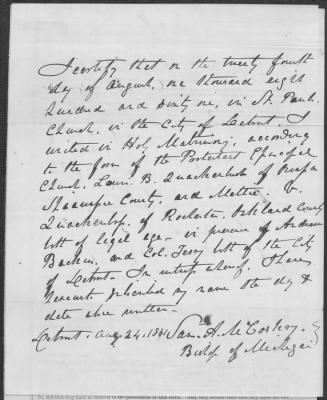 I certify that on the twenty fourth
day of August, one thousand eight
hundred and sixty one, in St. Pauls
Church, in the City of Detroit, I
united in Holy Matrimony, according
to the form of the Protestant Episcopal
Church, B. Quackenbush of
Shiawassee County, and Mattie V.
Quackenbush, of Rochester, Oakland County
both of legal age - in presence of Andrew
Backus, and Col. Terry both of the City
of Detroit - In witness whereof, I have
hereunto subscribed my name the day &
date above written -
Detroit. Aug 24, 1861 Sam. A. McCoskry.
Bishop of Michigan